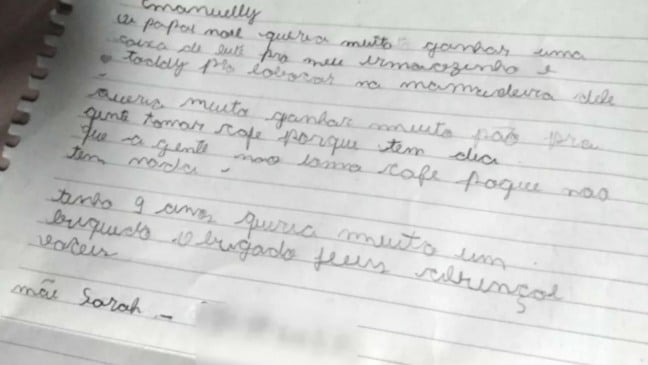 Emanuelly
papai noel queria muito ganhar uma
caixa de leite pra meu irmaozinho e
toddy pra colocar na mamadeira dele
queria muito ganhar muito pão pra
gente tomar cafe porque tem dia
que a gente nao toma cafe poque nao
tem nada.
tenho 9 anos queria muito um
briquedo obrigado jesus abençoe
voceis
mãe Sarah -